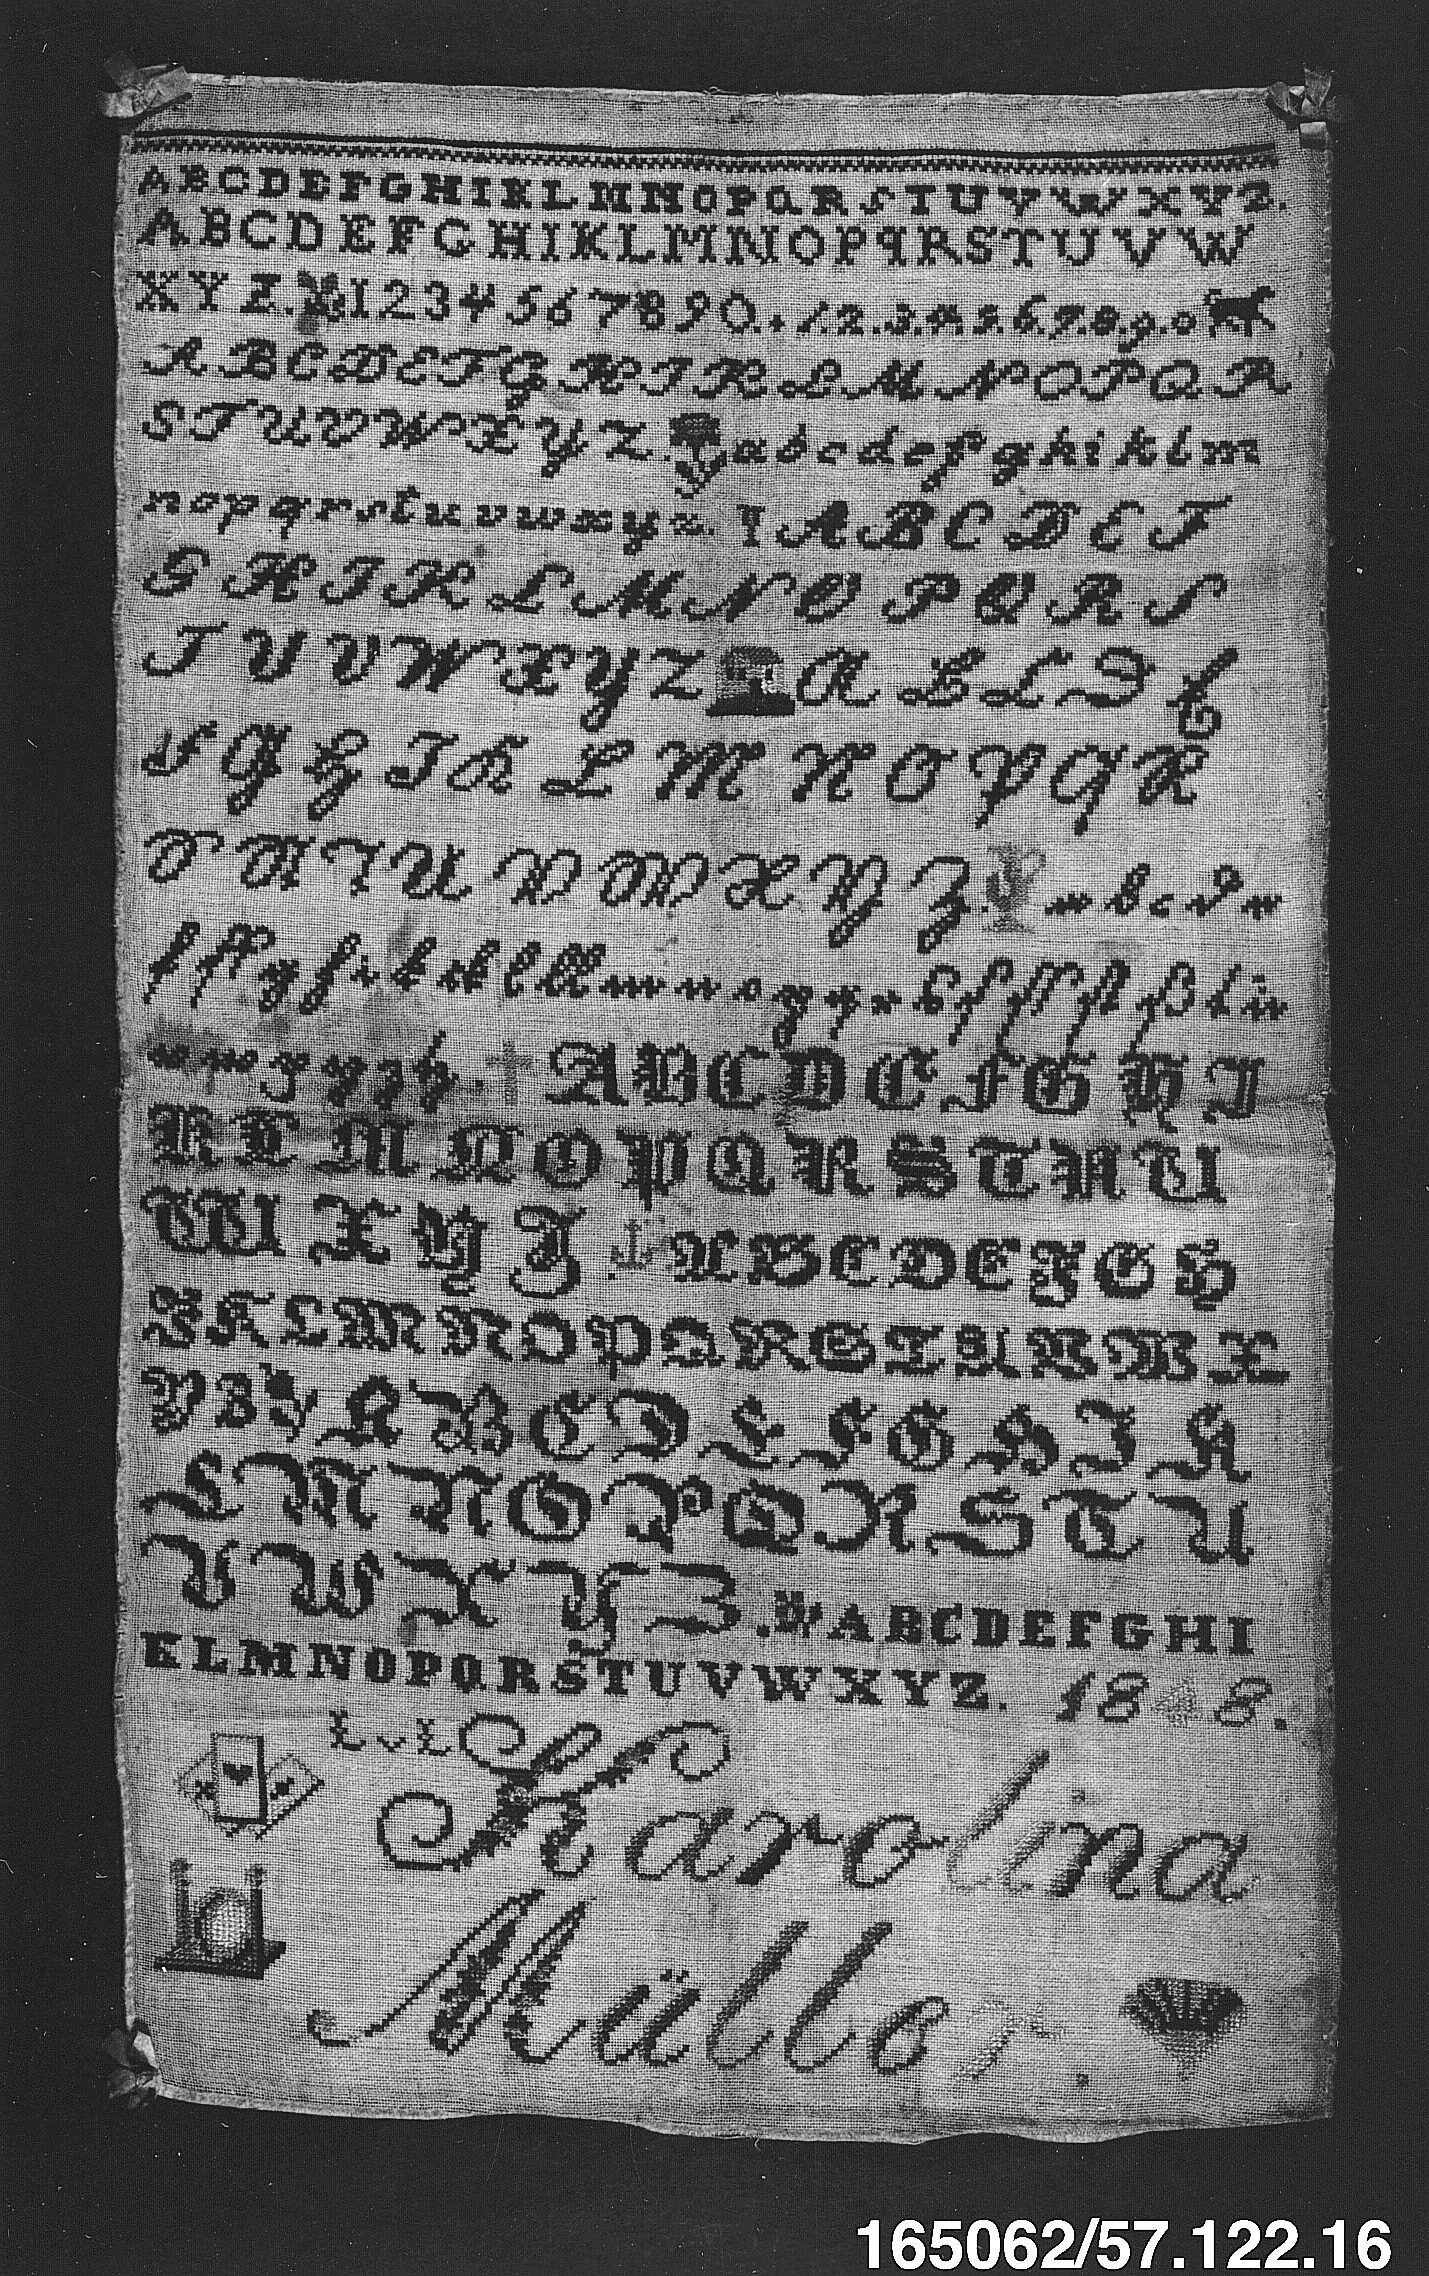 ABCDEFGHIKLMNOPQRSTUVWXYZ.
ABCDEFGHIKLMNOPqRSTUVW
XYZ. 1234567890. 1.2.3.4.5.6.7.8.9.0
ABCDEFGHIKLMNOPQR
STUVWXYZ. abcdefghiklm
nopqrstuvwxyz. ABCDEF
GHIKLMNOPQRS
TUVWXYZ ABCDE
FGHIKLMNOPQR
STU VWXYZ. abcde
fffghiklllmnopqrsſſſſtßtu
vwxyz. ABCDEFGHI
KLMNOPQRSTVU
WXYZ ABCDEFGH
IKLMNOPQRSTUVWX
YZ ABCDEFGHIK
LMNOPQRSTU
VWXYZ. ABCDEFGHI
KLMNOPQRSTUVWXYZ. 1848.
L v L
Karolina
Müller.
165062/57.122.16